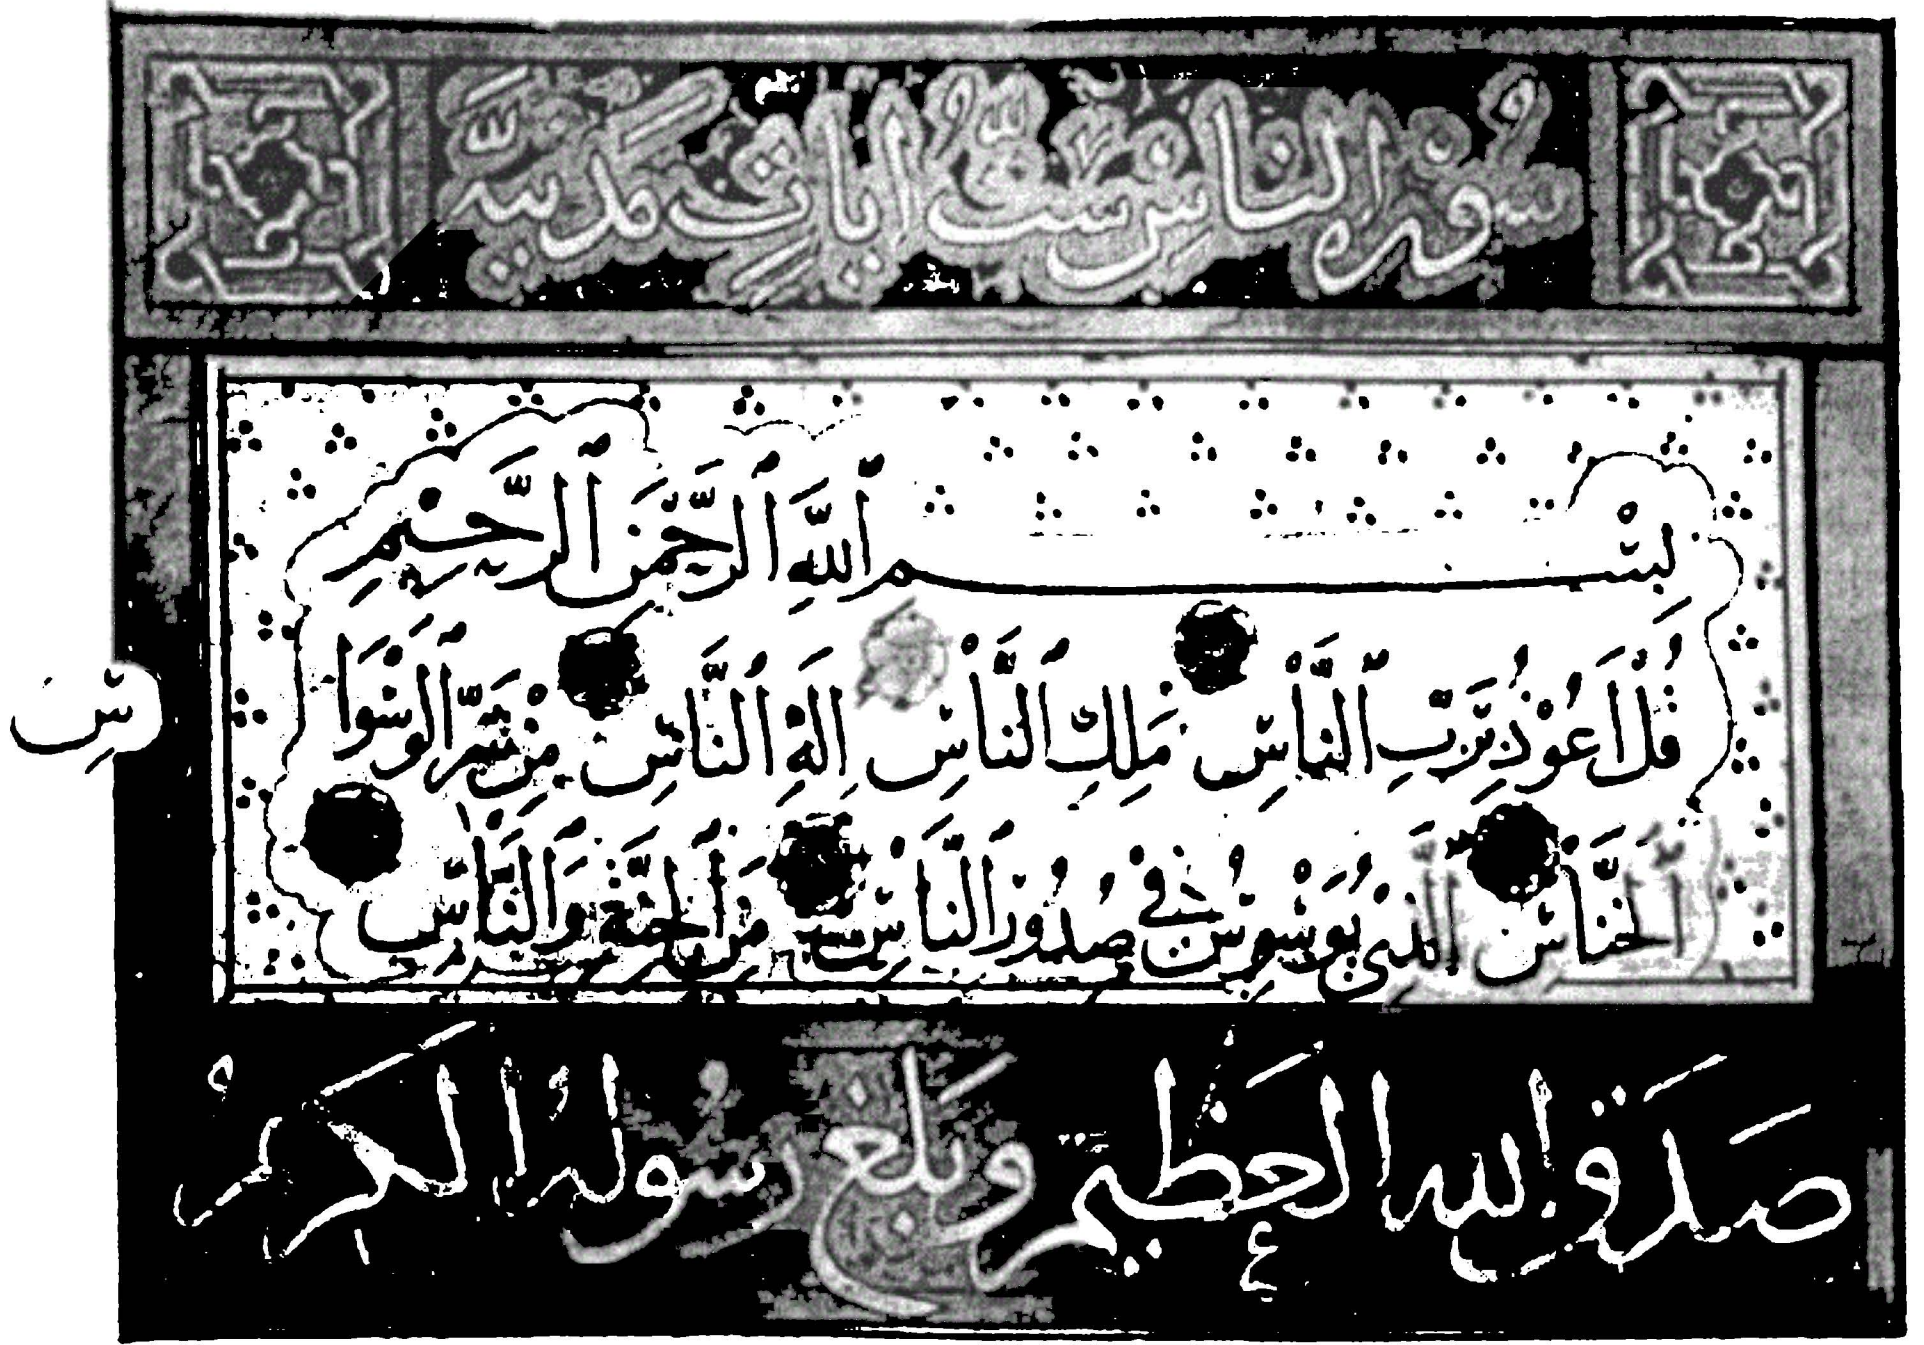 سورة الناس ست ايات مدنية
بِسْمِ ٱللَّهِ ٱلرَّحْمَنِ ٱلرَّحِيمِ
قُلْ أَعُوذُ بِرَبِّ ٱلنَّاسِ مَلِكِ ٱلنَّاسِ إِلَهِ ٱلنَّاسِ مِنْ شَرِّ ٱلْوَسْوَا
سِ
ٱلْخَنَّاسِ ٱلَّذِي يُوَسْوِسُ فِي صُدُورِ ٱلنَّاسِ مِنَ ٱلْجِنَّةِ وَٱلنَّاسِ
صَدَقَ ٱللَّه العَظِيم وَبَلَّغَ رَسُولُهُ الكَرِيمُ